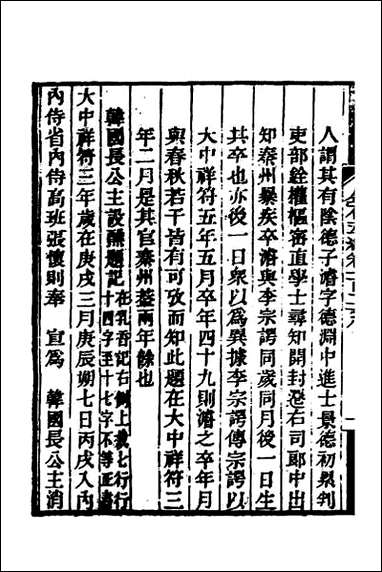 人謂其有陰德子濬字德淵中進士景德初累判
吏部銓權樞密直學士尋知開封府右司郎中出
知秦州暴疾卒濬與李宗諤同歲同月後一日生
其卒也亦後一日衆以爲異據李宗諤傳宗諤以
大中祥符五年五月卒年四十九則濬之卒年月
與春秋若干皆有可攷而知此題在大中祥符三
年二月是其官秦州葢兩年餘也
韓國長公主設醮題記在乳香記右側上截七行行十四字至十七字不等正書
大中祥符三年歲在庚戌三月庚辰朔七日丙戌入內
內侍省內侍高班張懷則奉 宣爲 韓國長公主消